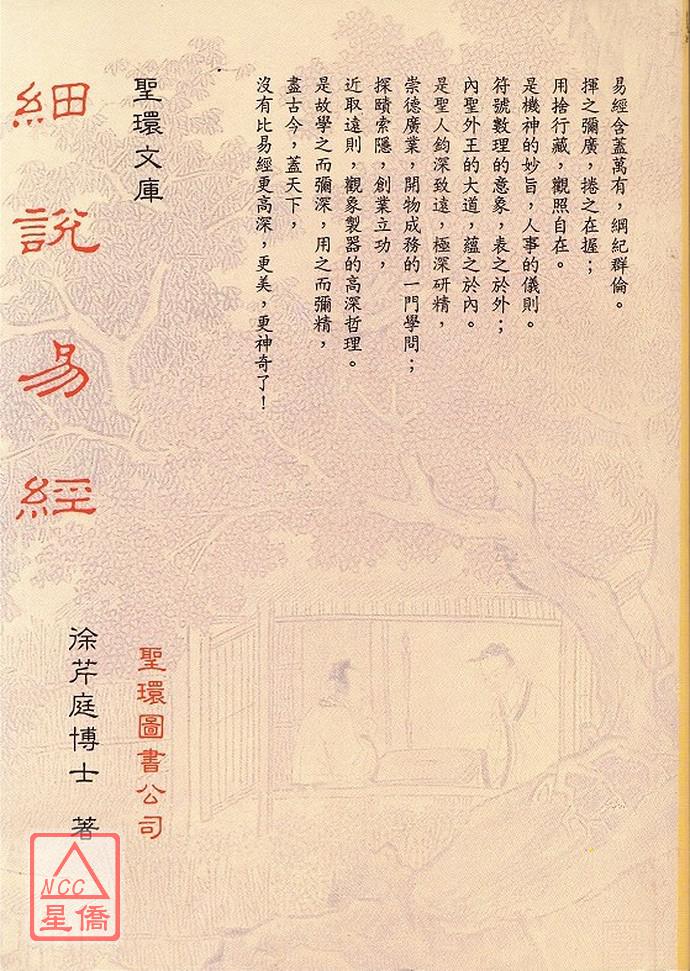 易經含蓋萬有，綱紀群倫。
揮之彌廣，捲之在握；
用捨行藏，觀照自在。
是機神的妙旨，人事的儀則。
符號數理的意象，表之於外；
內聖外王的大道，蘊之於內。
是聖人鈎深致遠，極深研精，
崇德廣業，開物成務的一門學問；
探賾索隱，創業立功，
近取遠則，觀象製器的高深哲理。
是故學之而彌深，用之而彌精，
盡古今，蓋天下，
沒有比易經更高深，更美，更神奇了！
聖環文庫
細說易經
聖環圖書公司
徐芹庭博士 著
NCC
星僑